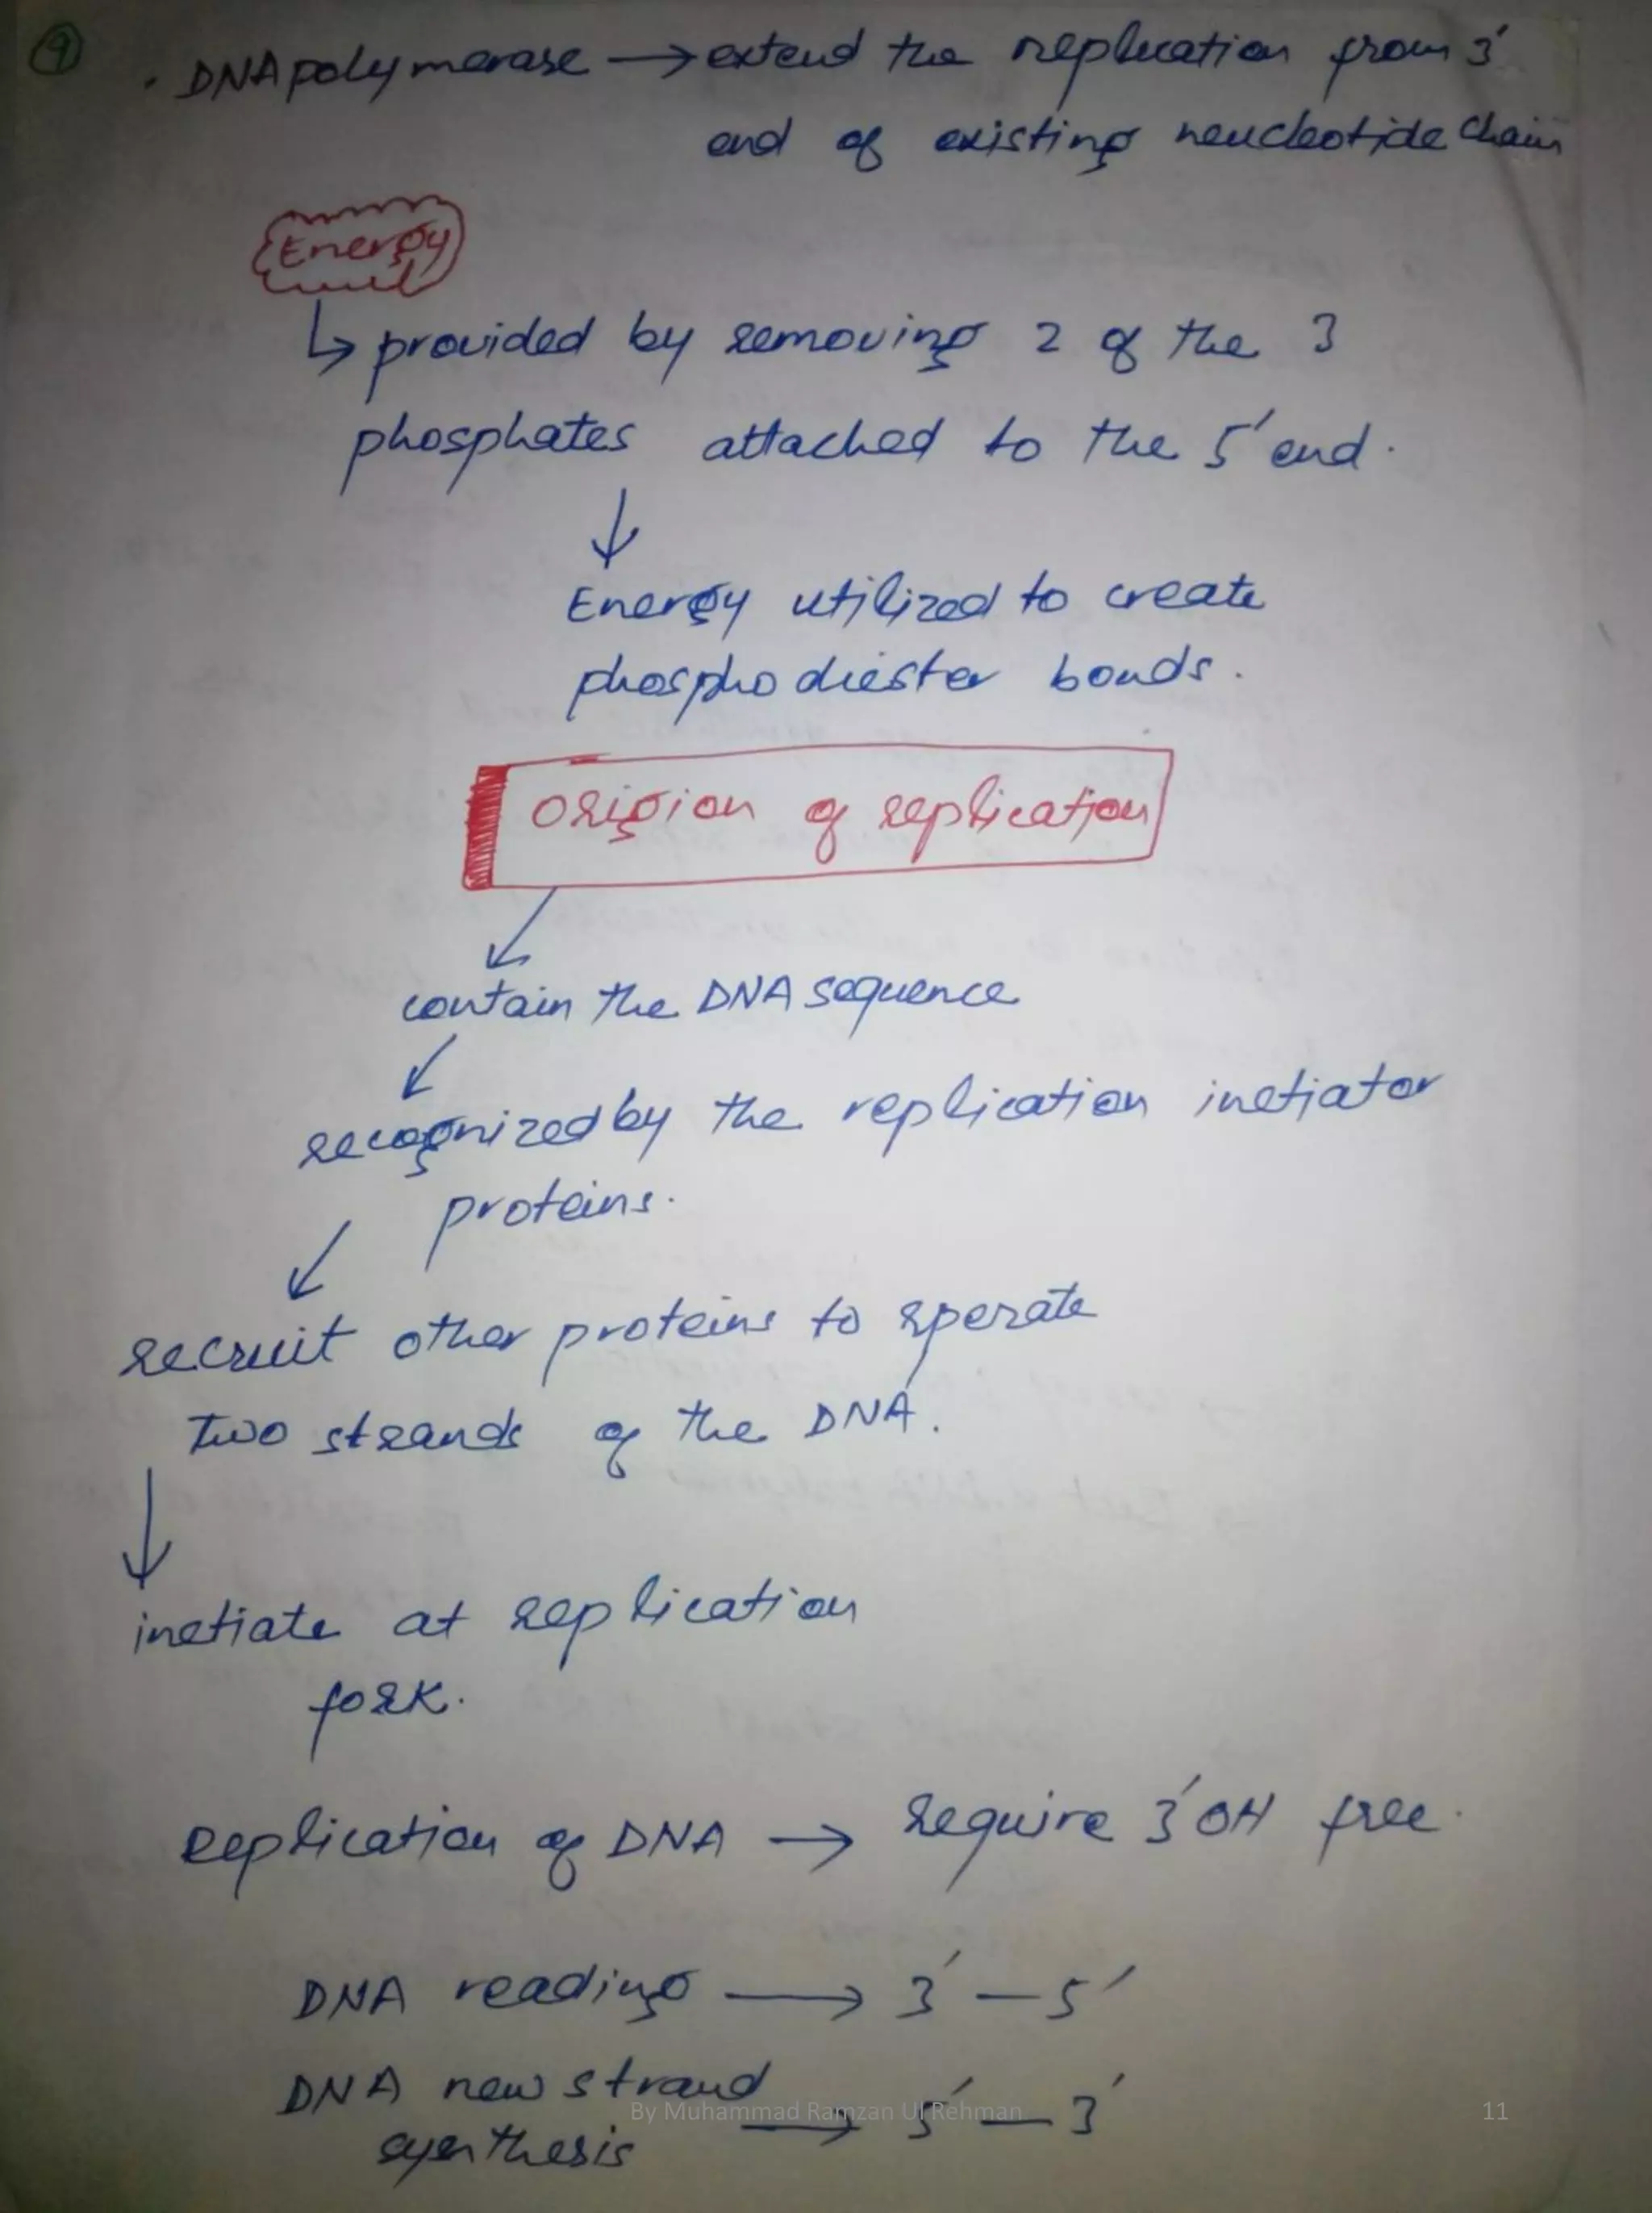 9
. DNA polymerase → extend the replication from 3'
end of existing neucleotide chain
Energy
↳ provided by removing 2 of the 3
phosphates attached to the 5' end.
↓
Energy utilized to create
phosphodiester bonds.
Origion of replication
↙
contain the DNA sequence
↙
recognized by the replication inetiator
proteins.
↙
recruit other proteins to sperate
two strands of the DNA.
↓
inetiate at replication
fork.
Replication of DNA → require 3'OH free.
DNA reading → 3' — 5'
DNA new strand
synthesis → 5' — 3'
By Muhammad Ramzan Ul Rehman
11